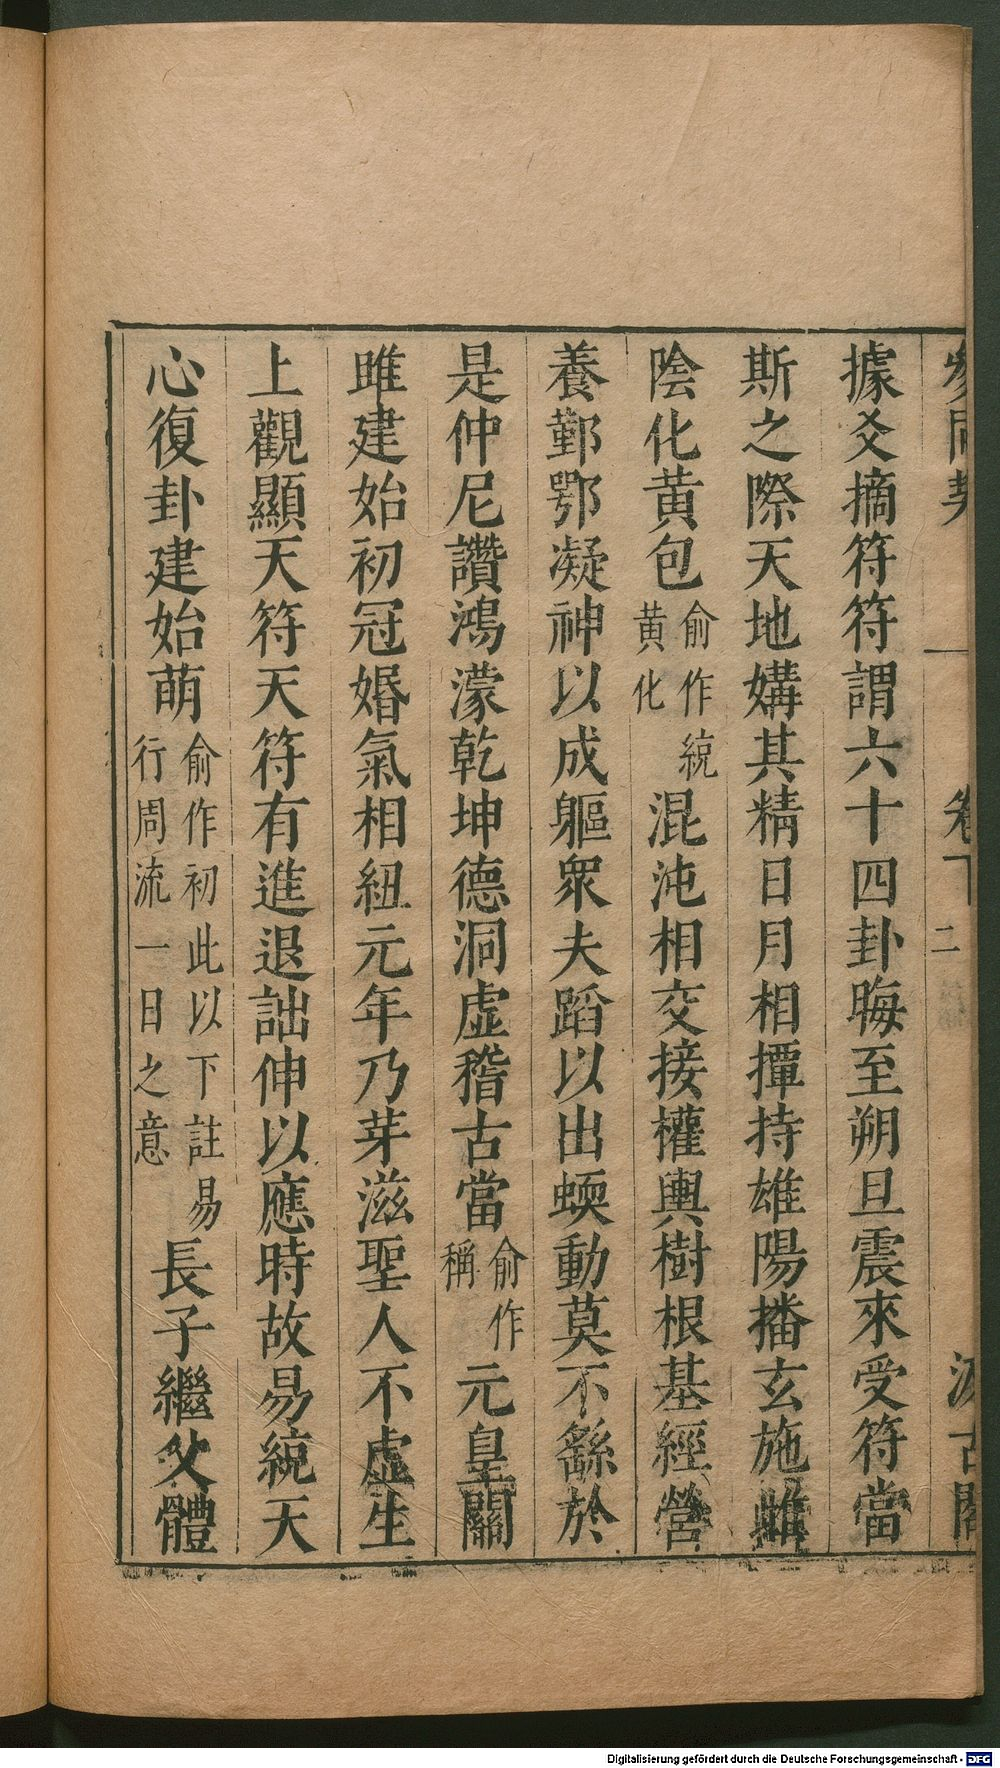 參同契 卷下 二 汲古閣
據爻摘符符謂六十四卦晦至朔旦震來受符當
斯之際天地媾其精日月相撢持雄陽播玄施雌
陰化黃包俞作統黃化混沌相交接權輿樹根基經營
養鄞鄂凝神以成軀眾夫蹈以出蝡動莫不繇於
是仲尼讚鴻濛乾坤德洞虛稽古當俞作稱元皇關
雎建始初冠婚氣相紐元年乃芽滋聖人不虛生
上觀顯天符天符有進退詘伸以應時故易統天
心復卦建始萌俞作初此以下註易行周流一日之意長子繼父體
Digitalisierung gefördert durch die Deutsche Forschungsgemeinschaft - DFG